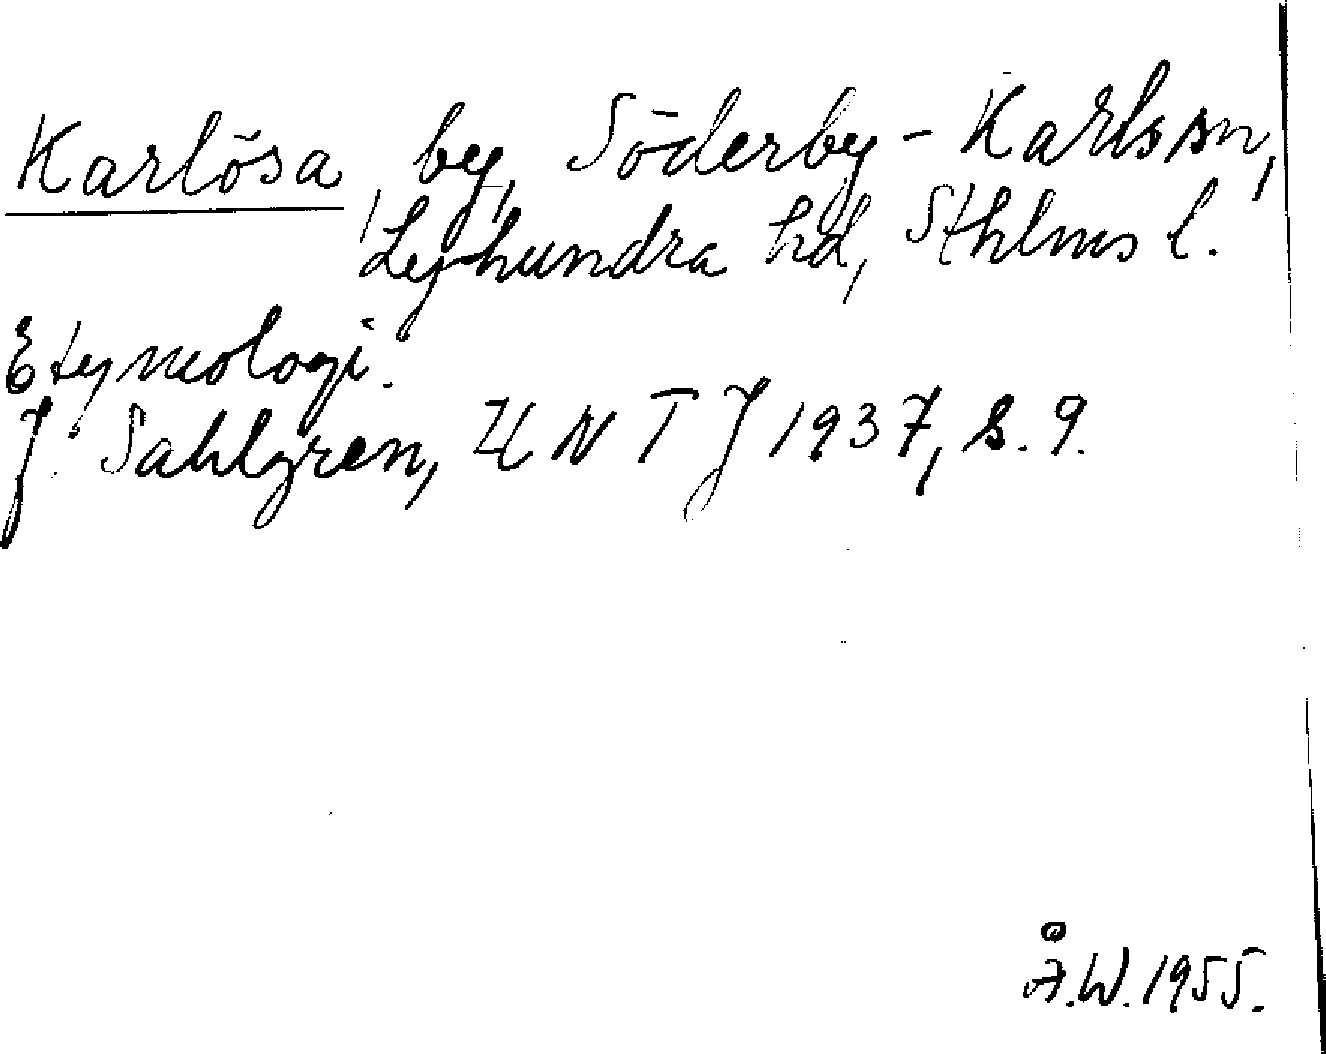 Karlösa, by, Söderby-Karls sn,
Lyhundra hd, Sthlms l.
Etymologi.
J. Sahlgren, UNTJ 1937, s. 9.
Å.W. 1955.